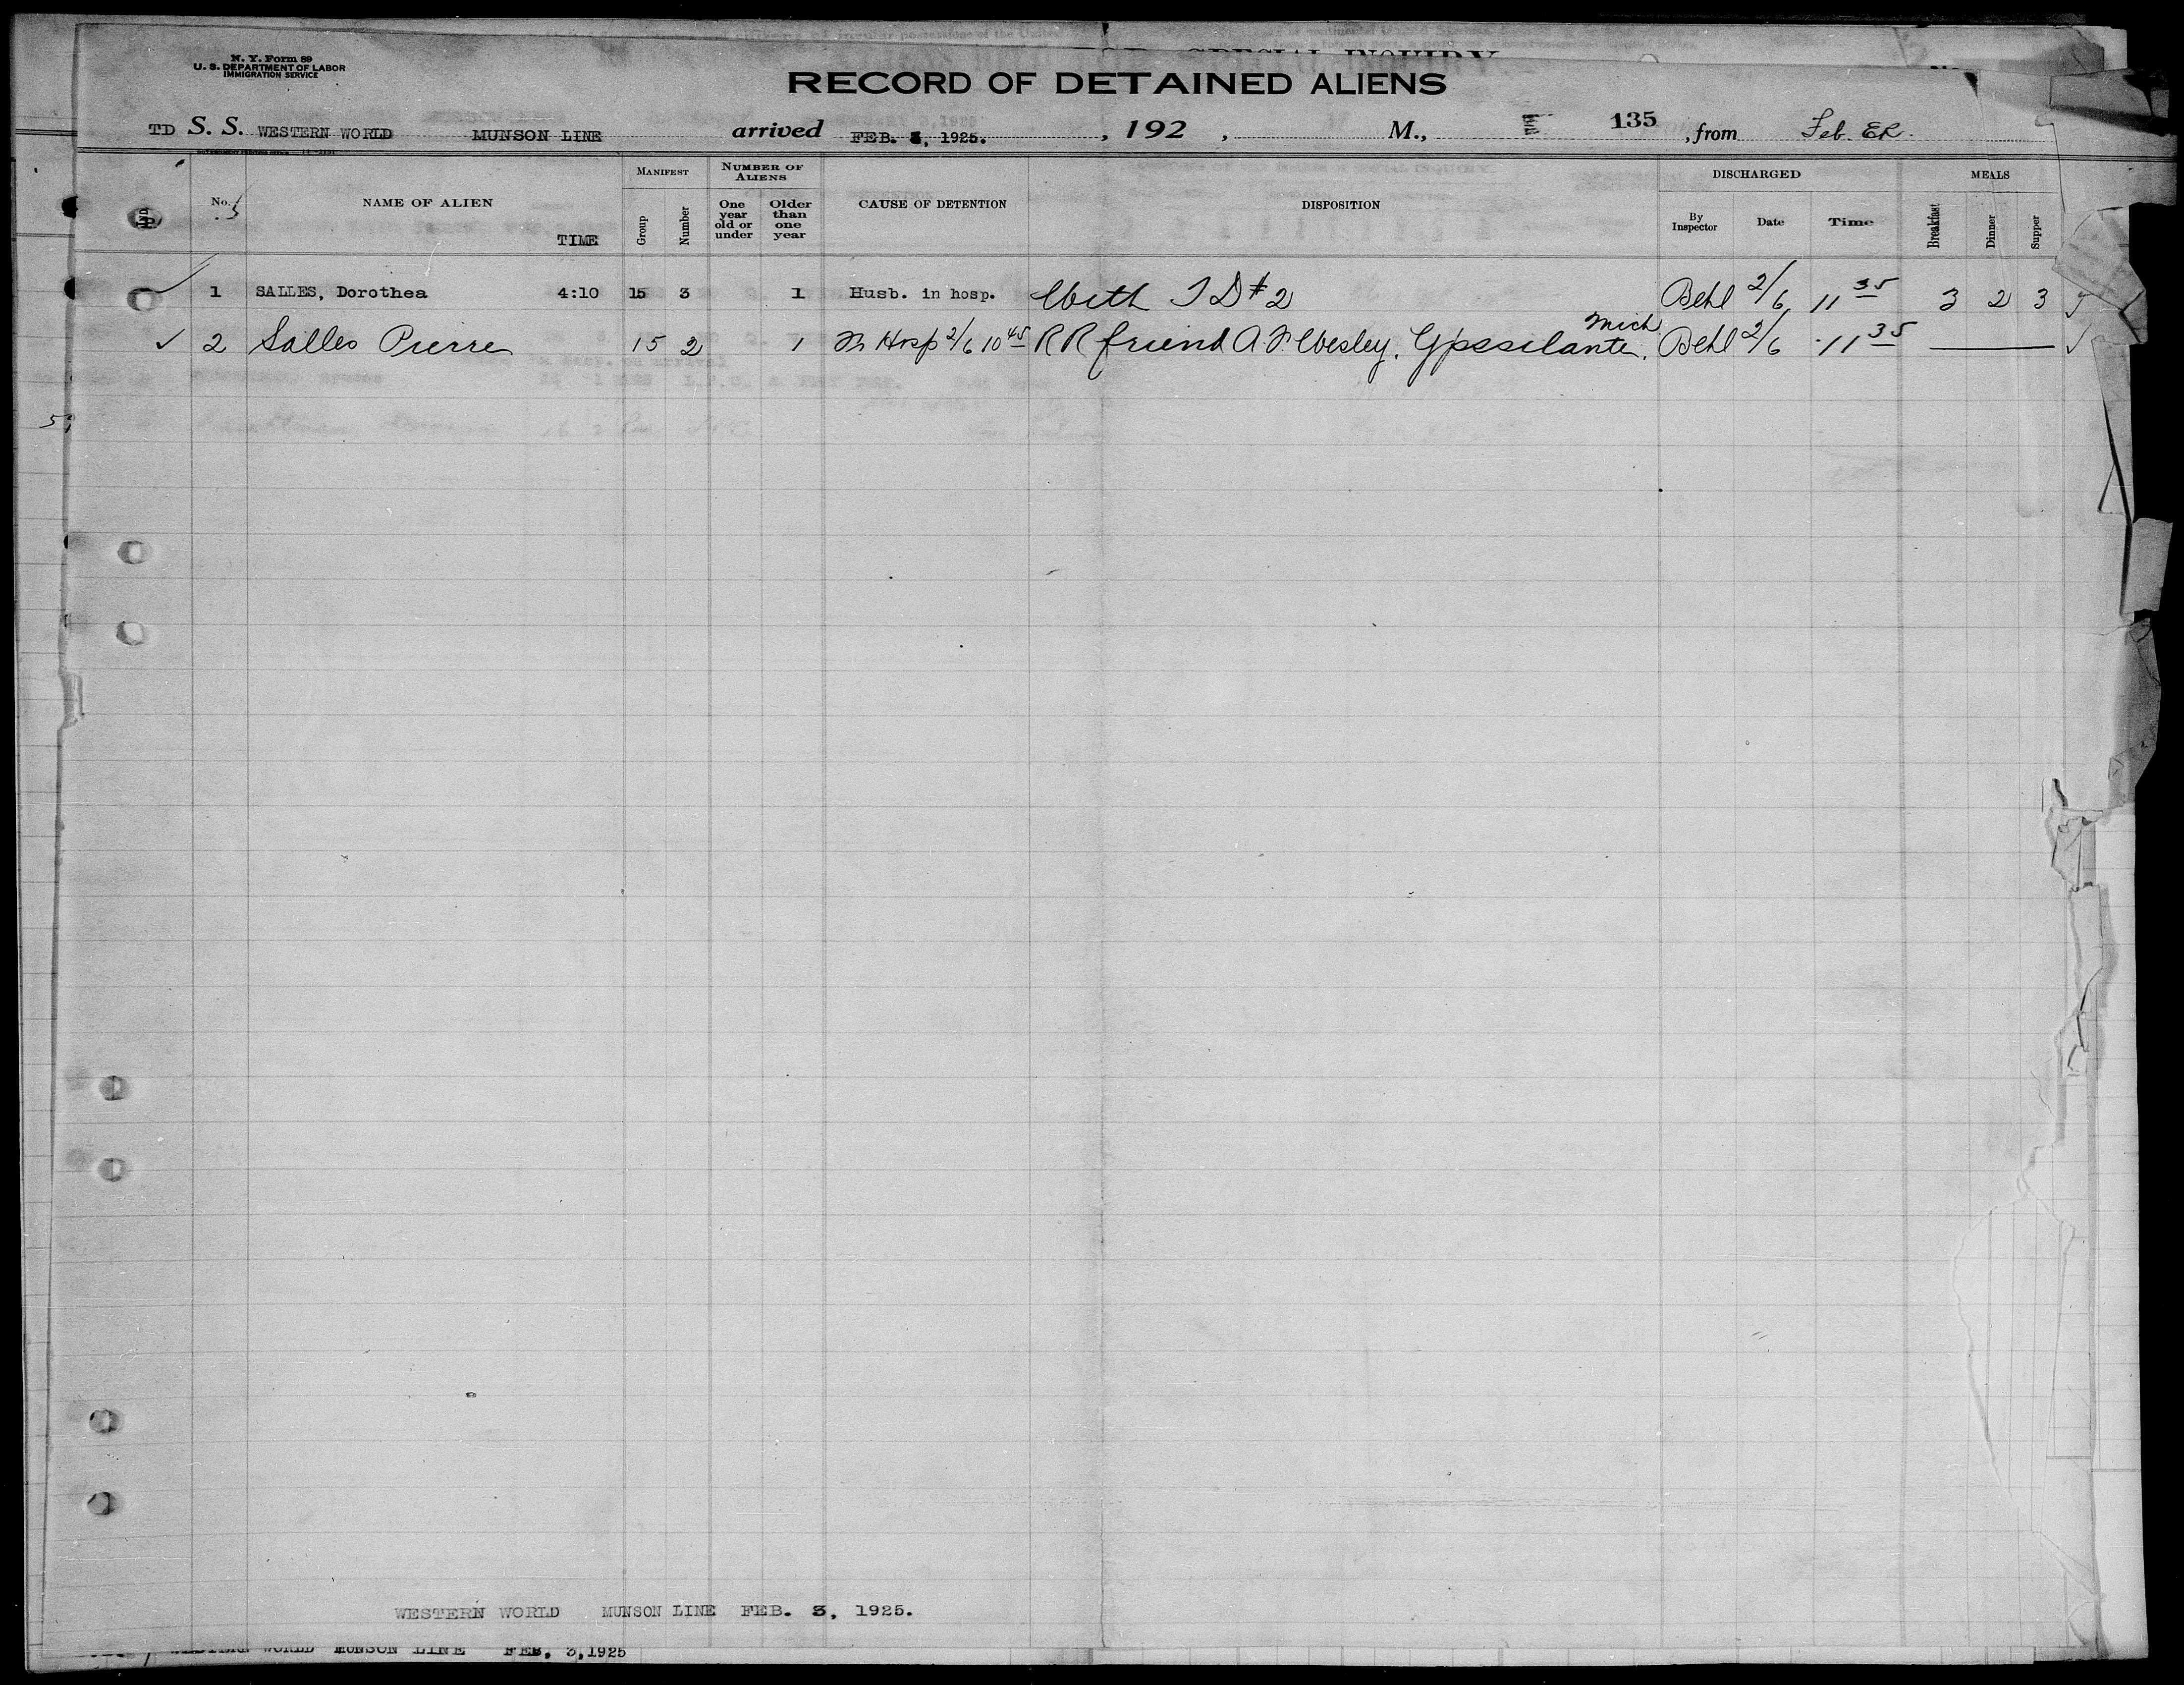 N. Y. Form 89
U. S. DEPARTMENT OF LABOR
IMMIGRATION SERVICE
RECORD OF DETAINED ALIENS
TD S. S. WESTERN WORLD MUNSON LINE arrived FEB. 3, 1925. , 192 , M., 135 , from Feb.
MANIFEST NUMBER OF ALIENS DISCHARGED MEALS
No. NAME OF ALIEN TIME Group Number One year old or under Older than one year CAUSE OF DETENTION DISPOSITION By Inspector Date Time Breakfast Dinner Supper
1 SALLES, Dorothea 4:10 15 3 1 Husb. in hosp. With TD #2 Behl 2/6 11 35 3 2 3
✓ 2 Salles Pierre 15 2 1 In Hosp 2/6 10 45 RR friend A. F. Wesley, Ypssilante, Mich Behl 2/6 11 35
WESTERN WORLD MUNSON LINE FEB. 3, 1925.
WESTERN WORLD MUNSON LINE FEB, 3,1925